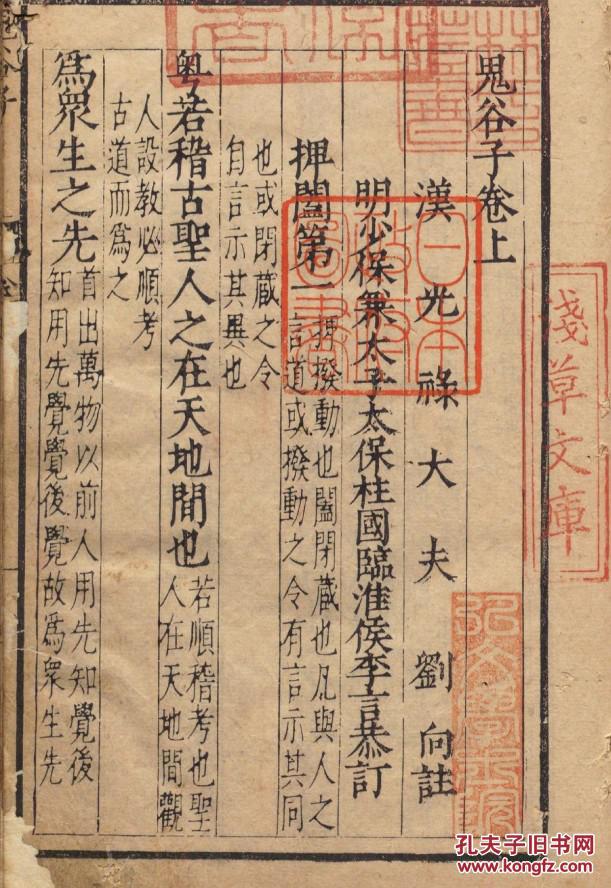 淺草文庫
林氏藏書
鬼谷子卷上
漢光祿大夫劉向註
日本政府圖書
明少保兼太子太保柱國臨淮侯李言恭訂
捭闔第一
捭撥動也闔閉藏也凡與人之
言道或撥動之令有言示其同
也或閉藏之令
自言示其異也
粵若稽古聖人之在天地間也
若順稽考也聖
人在天地間觀
人設教必順考
古道而爲之
爲眾生之先
首出萬物以前人用先知覺後
知用先覺覺後覺故爲眾生先
孔夫子旧书网
www.kongfz.com